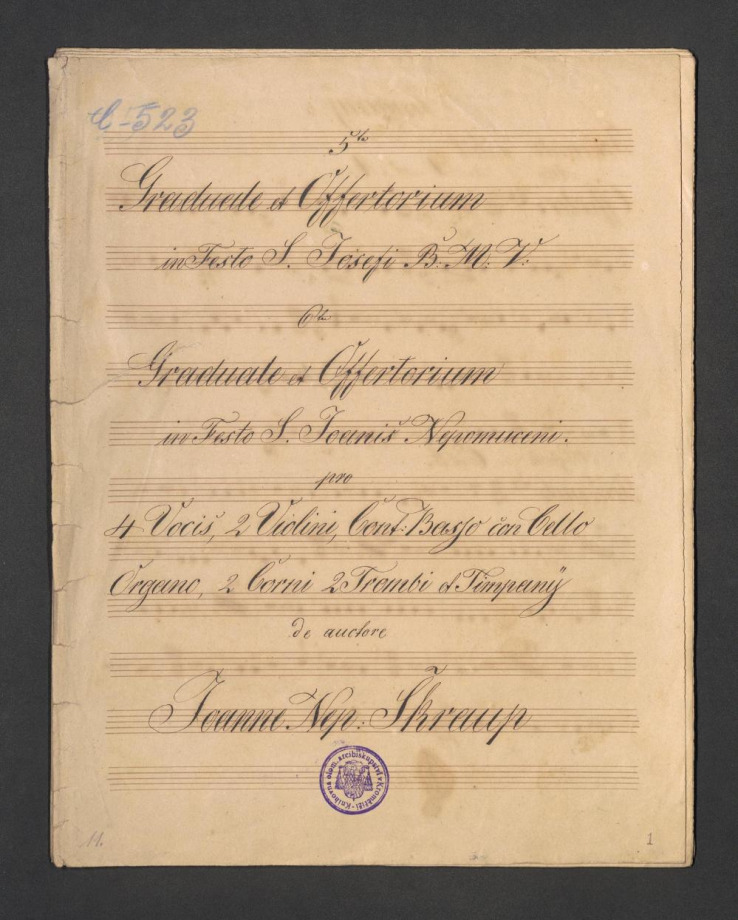 C-523
5to
Graduale et Offertorium
in Festo S. Josefi B: M: V:
6to
Graduale et Offertorium
in Festo S. Joaniš Nepomuceni.
pro
4 Vociš, 2 Violini, Cont: Basso con Cello
Organo, 2 Corni 2 Trombi et Timpanÿ
de auctore
Joanne Nep: Škraup
Knihovna olom. arcibiskupství v Kroměříži
11.
1